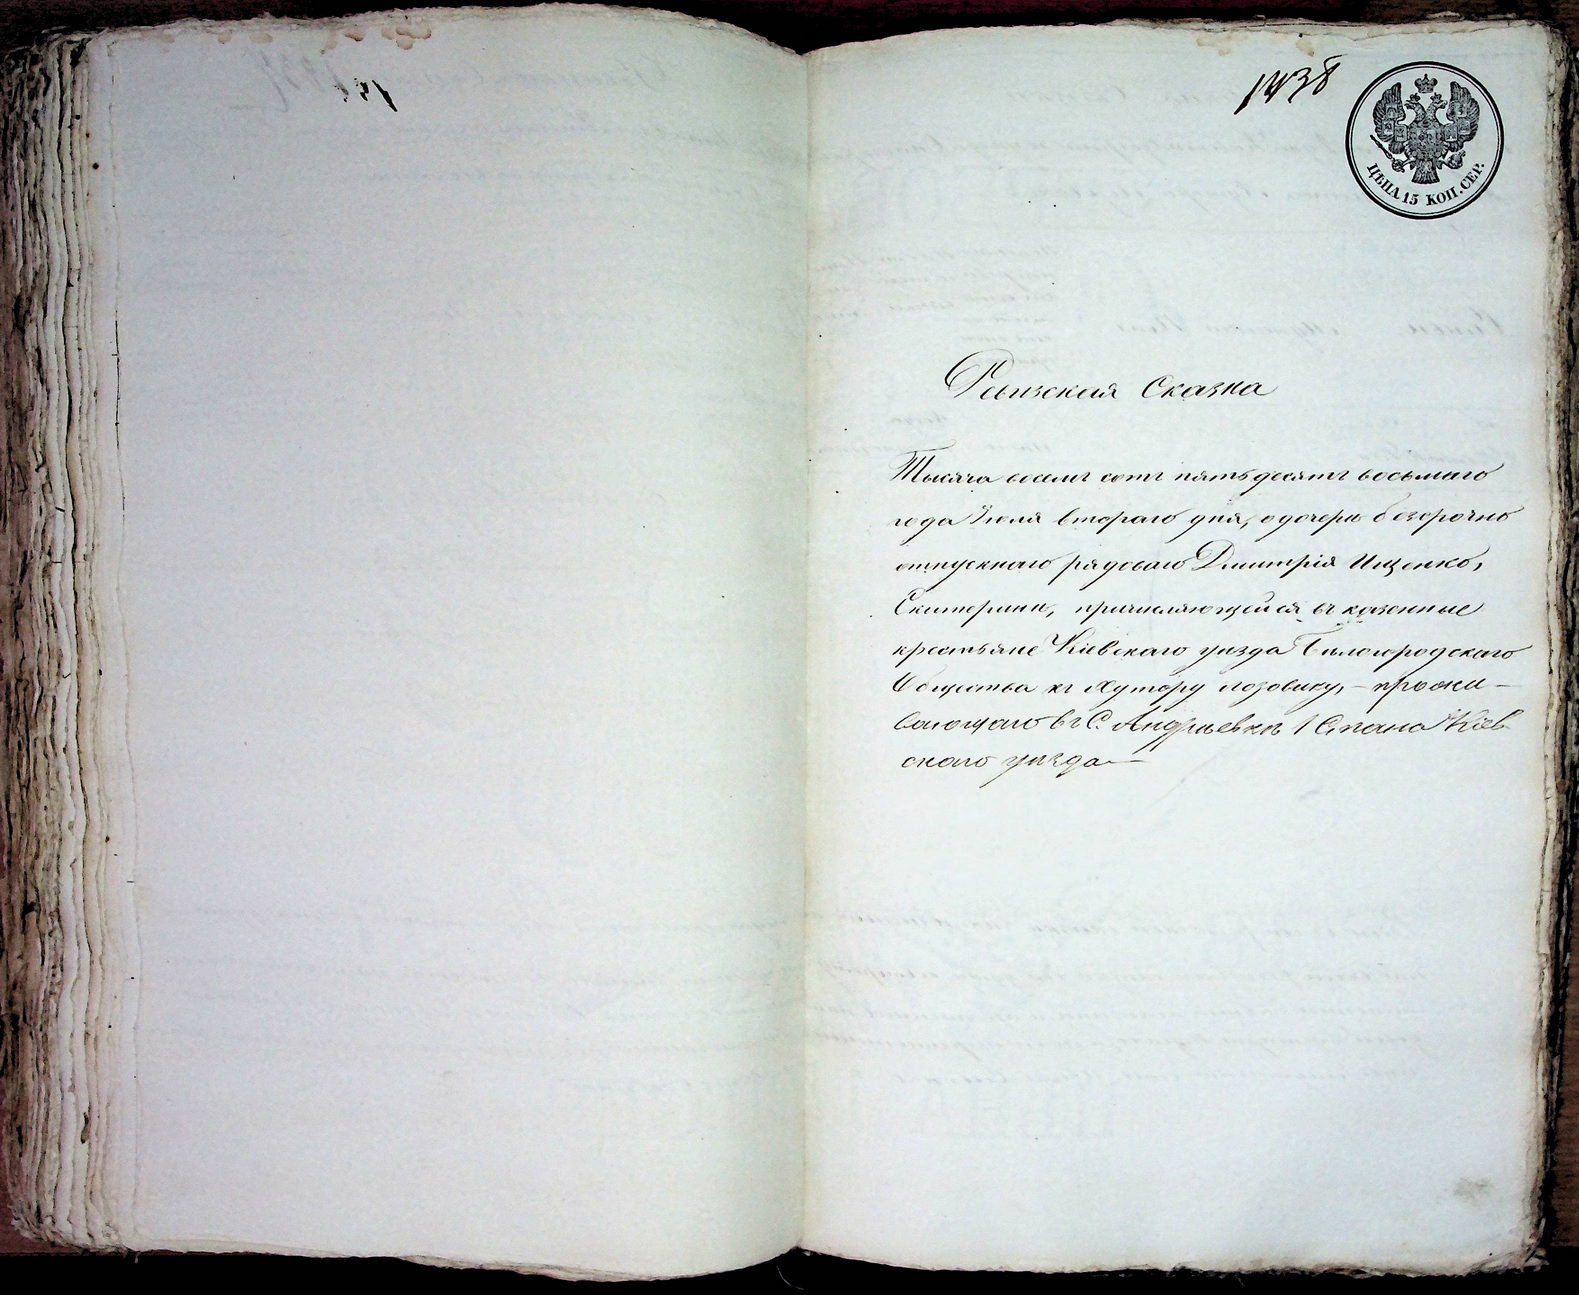 1438
ЦѢНА 15 КОП. СЕР.
Ревизская Сказка
Тысяча восемь сотъ пятьдесятъ восьмаго
года Іюля втораго дня, о дочери безсрочно
отпускнаго рядоваго Дмитрія Ищенко,
Екатерины, причисляющейся въ казенные
крестьяне Кіевскаго уѣзда Бѣлогородскаго
Общества къ Хутору Лозовику, – прожи–
вающаго въ С. Андрѣевкѣ 1 Стана Кіев
скаго уѣзда.—